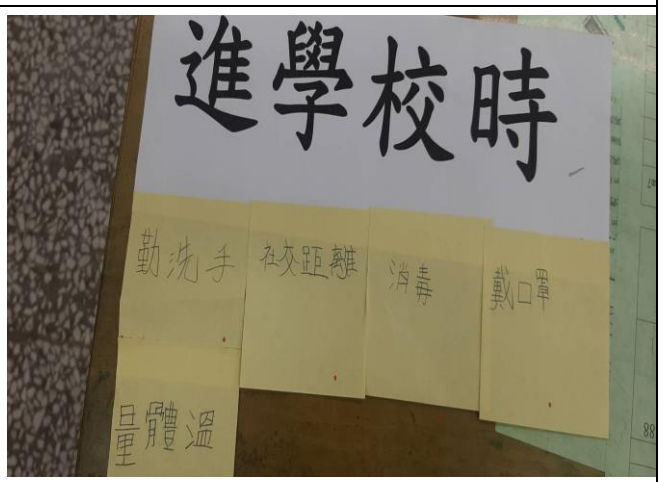 進學校時
勤洗手
社交距離
消毒
戴口罩
量體溫
88